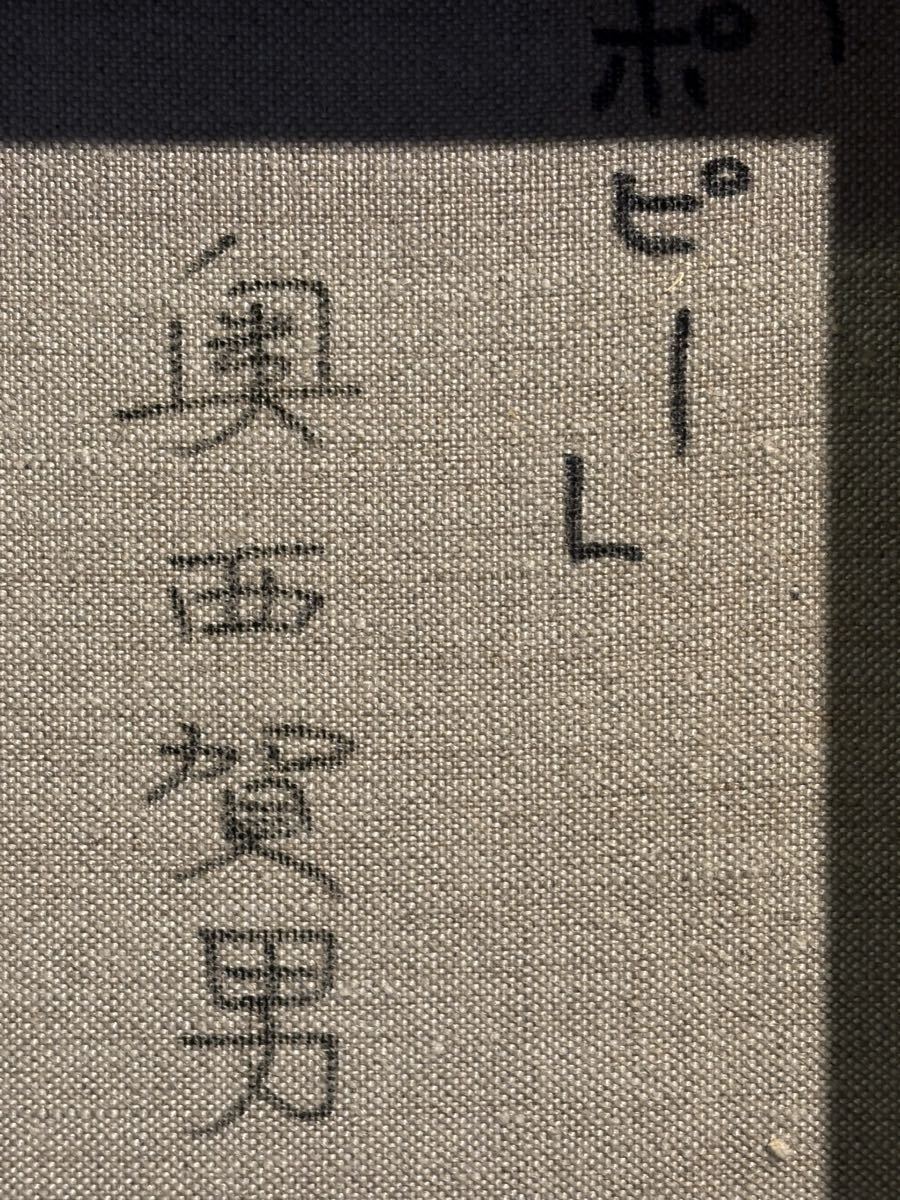 「ポピー」
奥西賀男